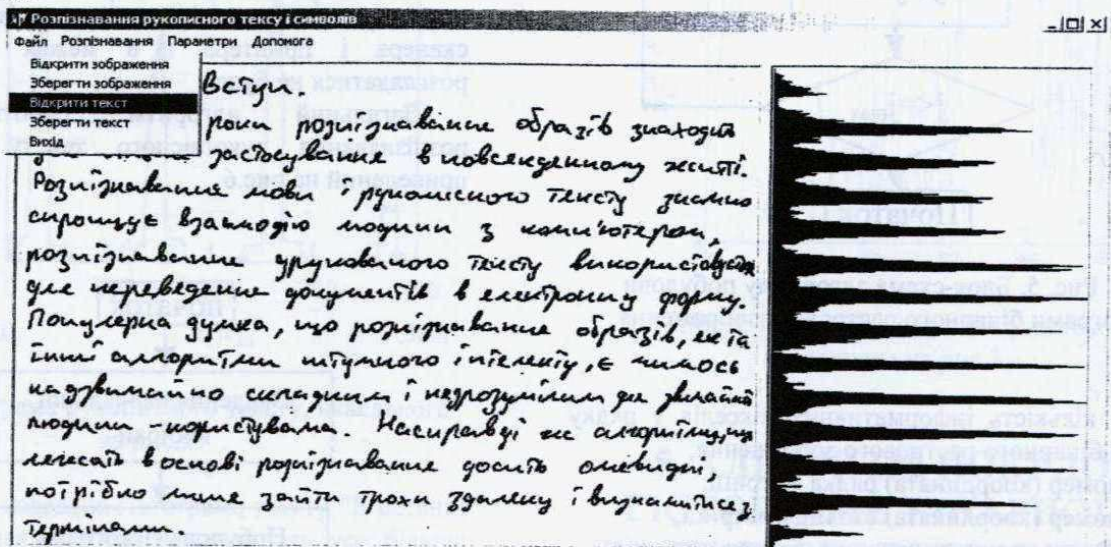 Розпізнавання рукописного тексу і символів
Файл Розпізнавання Параметри Допомога
Відкрити зображення
Зберегти зображення
Відкрити текст
Зберегти текст
Вихід
Вступ.
роки розпізнавання образів знаходить
застосування в повсякденному житті.
Розпізнавання мови і рукописного тексту значно
спрощує взаємодію людини з комп'ютером,
розпізнавання друкованого тексту використовується
для переведення документів в електронну форму.
Популярна думка, що розпізнавання образів, як і та
інші алгоритми штучного інтелекту, є чимось
надзвичайно складним і незрозумілим для звичайної
людини - користувача. Насправді ж алгоритми, що
лежать в основі розпізнавання досить очевидні,
потрібно лише зайти трохи здалеку і визначитися з
термінами.